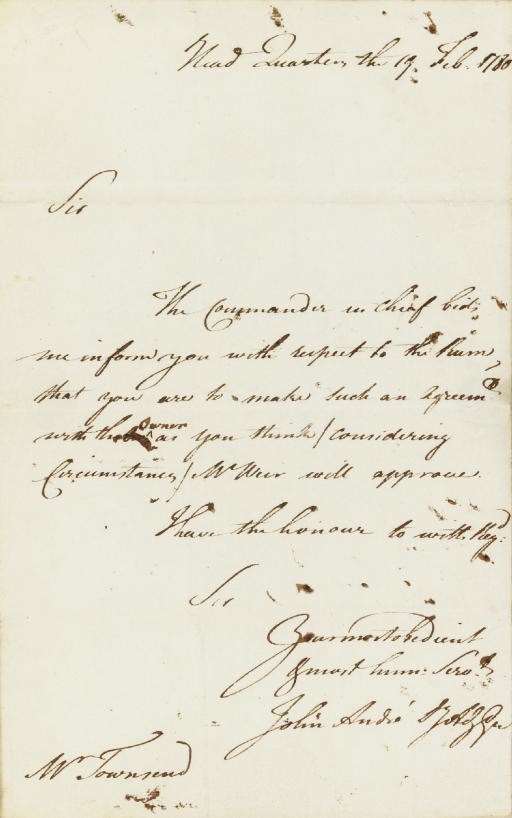 Head Quarters the 19 Feb. 1780
Sir
The Commander in Chief bids
me inform you with respect to the Rum,
that you are to make such an agreemt
with the Owner as you think / considering
Circumstances / Mr Weir will approve.
I have the honour to with Regd:
Sir
Your most obedient
& most hum: Servt
John André
Mr Townsend